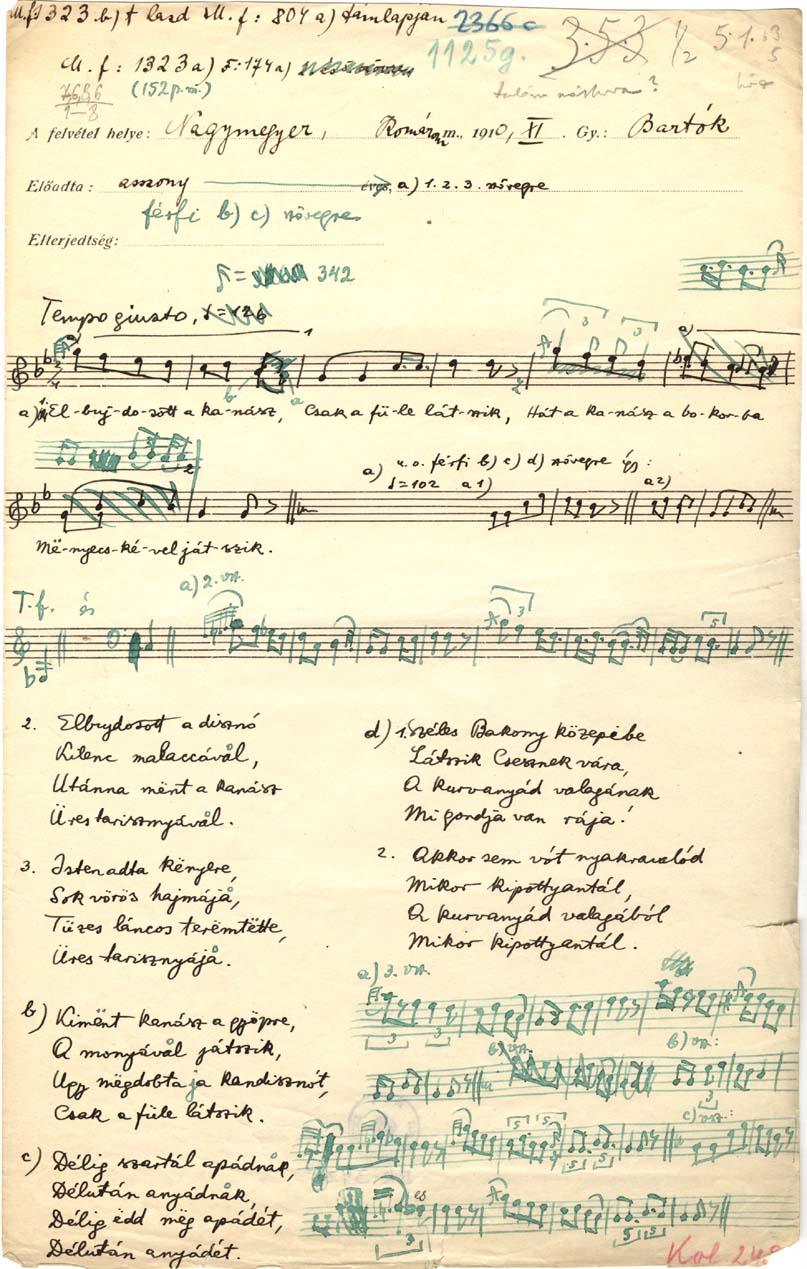 M.f. 1323 b) t lasd M. f: 804 a) támlapján 2366 c
1125g. 353 1/2 5.1.
M. f: 1323 a) 5:174 a)
(152 p.m.) talán nóshova?
1—8
A felvétel helye: Nagymegyer, Komárom m., 1910, XI. Gy.: Bartók
Előadta: asszony éves, a) 1. 2. 3. növegre
férfi b) c) növegre
Elterjedtség:
♪= 342
Tempo giusto,
a) 1. El-buj-do-sott a ka-nász, Csak a fü-le lát-szik, Hát a ka-nász a bo-kor-ba
a) u. o. férfi b) c) d) növegre így:
♩=102 a1) a2)
Më-nyecs-ké-vel ját-szik.
a) 2. vsz.
T. f. és
2. Elbujdosott a disznó
Kilenc malaccåvål,
Utánna mënt a kanász
Üres tarisznyávål.
3. Isten adta kënyere,
Sok vörös hajmájå,
Tüzes láncos terëmtëtte,
Üres tarisznyájå.
b) Kimënt kanász a gyöpre,
A monyávål játszik,
Ugy mëgdobta ja kandisznót,
Csak a füle látszik.
c) Délig szartál apádnåk,
Délután anyádnåk,
Délig ëdd mëg apádét,
Délután anyádét.
d) 1. Széles Bakony közepibe
Látszik Csesznek vára,
A kurvanyád valagának
Mi gondja van rája!
2. Akkor sem vót nyakravalód
Mikor kipottyantál,
A kurvanyád valagából
Mikor kipottyantál.
a) 3. vsz.
b) vsz. b) vsz:
c) vsz.: